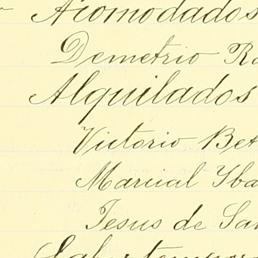 Acomodados
Demetrio Ro
Alquilados
Victorio Bet
Marcial Yba
Jesus de Sa